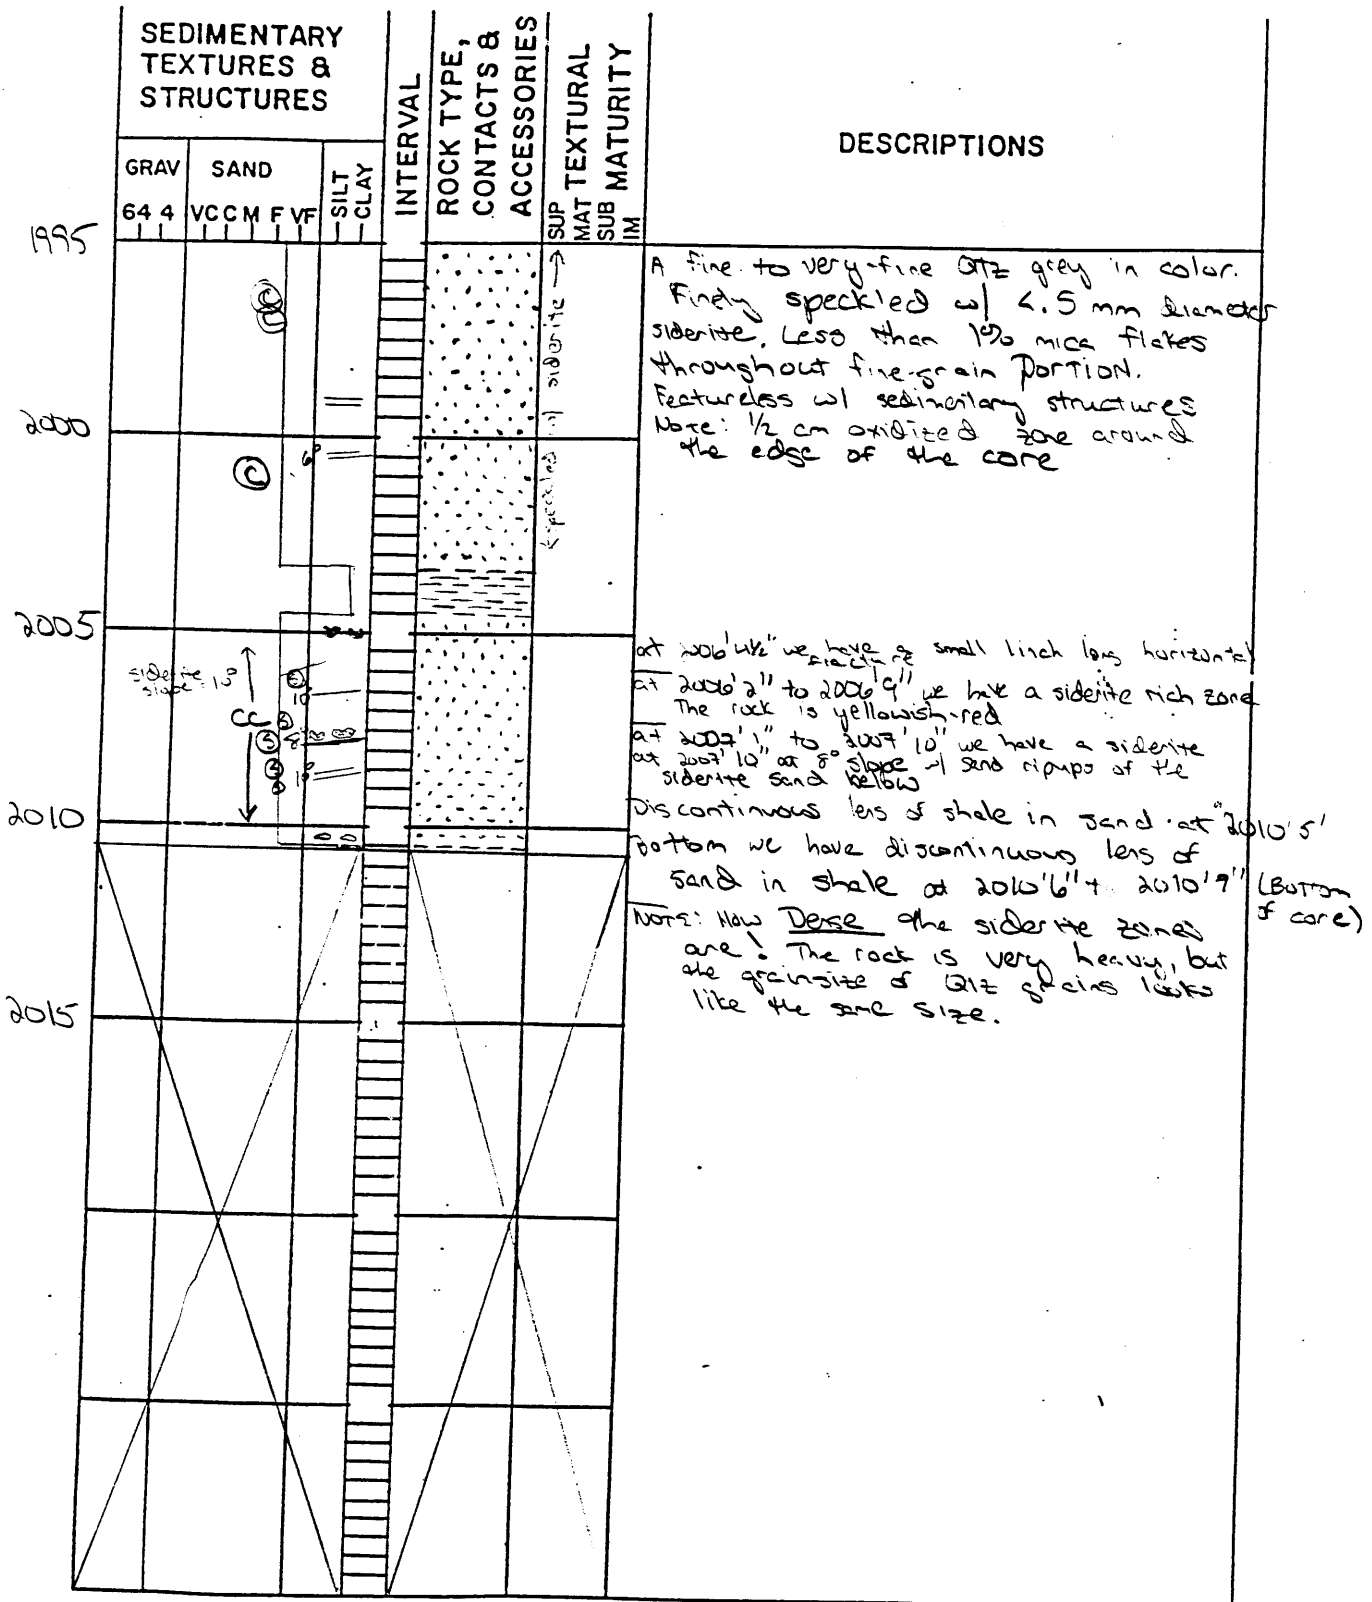 SEDIMENTARY
TEXTURES &
STRUCTURES
GRAV
SAND
SILT
CLAY
64 4
VC C M F VF
INTERVAL
ROCK TYPE,
CONTACTS &
ACCESSORIES
TEXTURAL
MATURITY
SUP
MAT
SUB
IM
DESCRIPTIONS
1995
A fine to very-fine QTZ grey in color.
Finely speckled w/ <.5 mm diameter
siderite. Less than 1% mica flakes
throughout fine-grain PORTION.
Featureless w/ sedimentary structures
Note: 1/2 cm oxidized zone around
the edge of the core
C
speckled w/ siderite
2000
6°
C
2005
at 2006'4½" we have a small 1inch long horizontal
fracture
at 2006'2" to 2006'9" we have a siderite rich zone
The rock is yellowish-red
at 2007'1" to 2007'10" we have a siderite
at 2007'10" at 8° slope w/ sand ripups of the
siderite sand below
siderite
slope
10°
CC
8°
10°
2010
Discontinuous lens of shale in sand at 2010'5'
Bottom we have discontinuous lens of
sand in shale at 2010'6" + 2010'9" (Bottom
of core)
NOTE: How Dense the siderite zones
are! The rock is very heavy, but
the grainsize of QTZ grains looks
like the same size.
2015